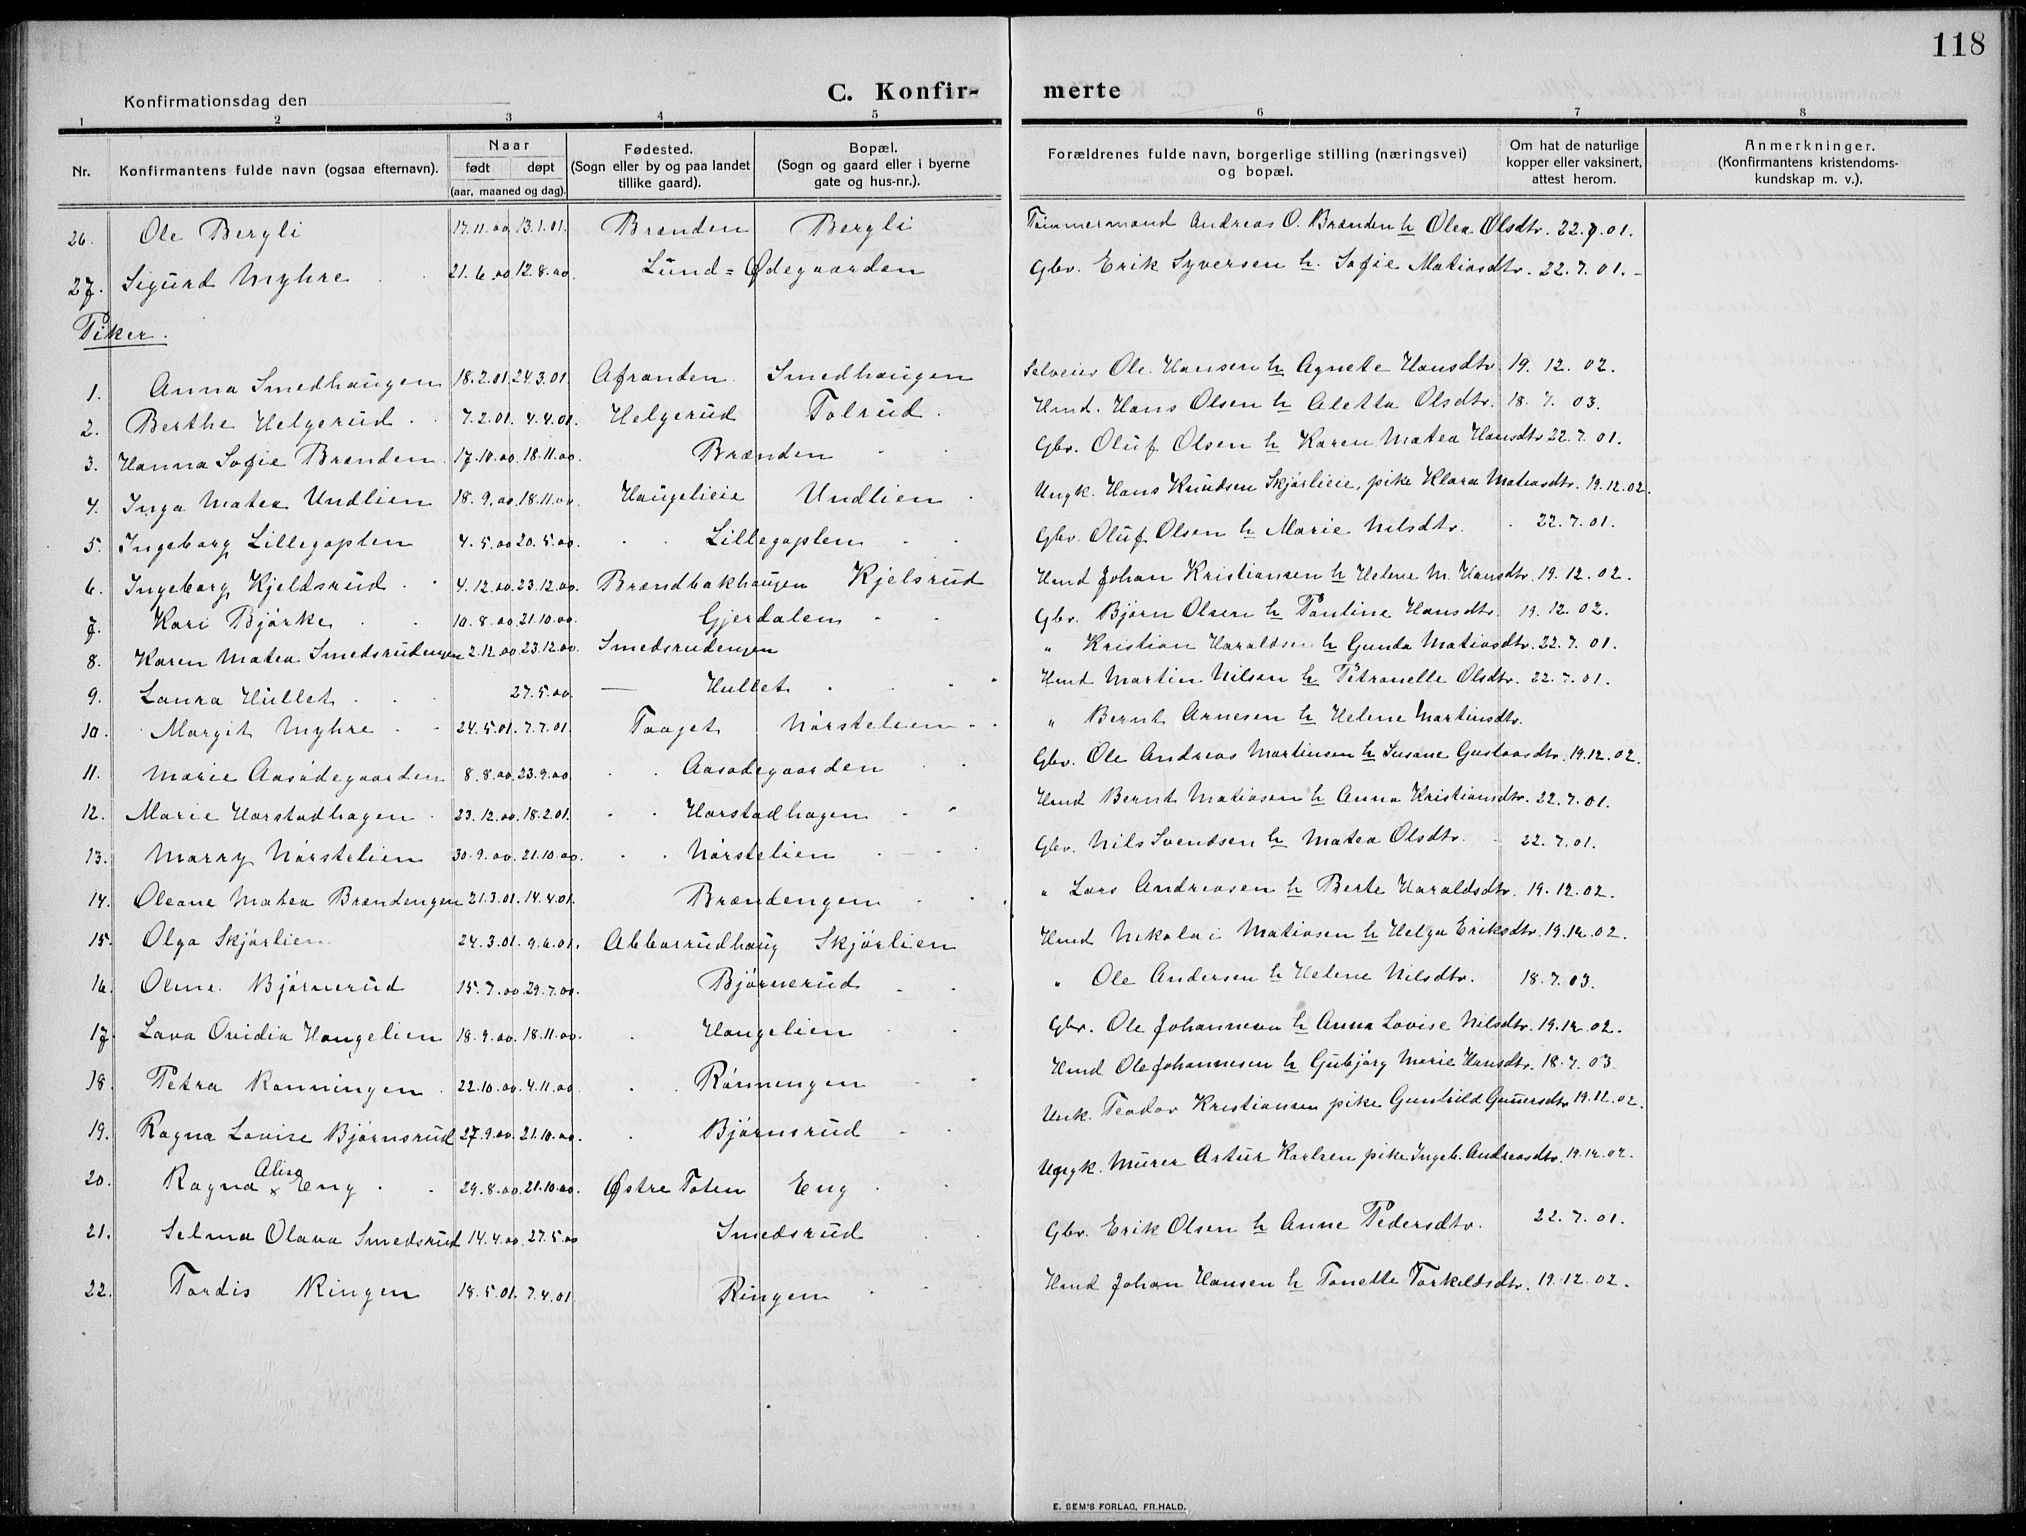 118
Konfirmationsdag den
C. Konfir- merte
1 2 3 4 5 6 7 8
Nr. Konfirmantens fulde navn (ogsaa efternavn). Naar født døpt (aar, maaned og dag). Fødested. (Sogn eller by og paa landet tillike gaard). Bopæl. (Sogn og gaard eller i byerne gate og hus-nr.). Forældrenes fulde navn, borgerlige stilling (næringsvei) og bopæl. Om hat de naturlige kopper eller vaksinert, attest herom. Anmerkninger. (Konfirmantens kristendoms- kundskap m. v.).
26. Ole Bergli 17.11.00 13.1.01. Brænden Bergli Tømmermand Andreas O. Brænden h Olea Olsdtr. 22.7.01.
27. Sigurd Myhre 21.6.00 12.8.00. Lund = Ødegaarden Gbr. Erik Syversen h. Sofie Matiasdtr. 22.7.01.
Piker.
1. Anna Smedhaugen 18.2.01. 24.3.01. Afranden Smedhaugen Selveier Ole Hansen h Agnete Hansdtr. 19.12.02.
2. Berthe Helgerud 7.2.01. 4.4.01. Helgerud Tolrud. Hmd. Hans Olsen h Aletta Olsdtr. 18.7.03.
3. Hanna Sofie Brænden 17.10.00. 18.11.00. Brænden Gbr. Oluf Olsen h Karen Matea Hansdtr 22.7.01.
4. Inga Matea Undlien 18.9.00. 18.11.00. Haugelieie Undlien Ungk. Hans Knudsen Skjørlieie, pike Klara Matiasdtr. 19.12.02.
5. Ingeborg Lillegaplen 4.5.00 20.5.00. Lillegaplen Gbr. Oluf Olsen h Marie Nilsdtr. 22.7.01.
6. Ingeborg Kjeldsrud 4.12.00 23.12.00. Brændbakhaugen Kjelsrud Hmd Johan Kristiansen h Helene M. Hansdtr. 19.12.02.
7. Kari Bjørke 10.8.00 21.10.00. Gjerdalen Gbr. Bjørn Olsen h Pauline Hansdtr. 19.12.02.
8. Karen Matea Smedsrudengen 2.12.00 23.12.00. Smedsrudengen " Kristian Haraldsen h Gunda Matiasdtr. 22.7.01.
9. Laura Hullet 27.5.00. — Hullet Hmd Martin Nilsen h Petronelle Olsdtr. 22.7.01.
10. Margit Myhre 24.5.01. 7.7.01. Taaget Nørstelien " Bernt Arnesen h Helene Martinsdtr.
11. Marie Aasødegaarden 8.8.00. 23.9.00. Aasødegaarden Gbr. Ole Andreas Martinsen h Susane Gustavsdtr. 19.12.02.
12. Marie Harstadhagen 23.12.00. 18.2.01. Harstadhagen Hmd Bernt Matiasen h Anna Kristiansdtr. 22.7.01.
13. Marry Nørstelien 30.9.00. 21.10.00. Nørstelien Gbr. Nils Svendsen h Matea Olsdtr. 22.7.01.
14. Oleane Matea Brændengen 21.3.01. 14.4.01. Brændengen " Lars Andreasen h Berte Haraldsdtr. 19.12.02.
15. Olga Skjørlien 24.3.01. 9.6.01. Abborrudhaug Skjørlien Hmd Nikolai Matiasen h Helga Eriksdtr. 19.12.02.
16. Oline Bjørnerud 15.7.00. 29.7.00. Bjørnerud " Ole Andersen h Helene Nilsdtr. 18.7.03.
17. Lava Ovidia Haugelien 18.9.00. 18.11.00. Haugelien Gbr. Ole Johannesen h Anna Lovise Nilsdtr. 19.12.02.
18. Petra Rønningen 22.10.00. 4.11.00 Rønnengen Hmd Ole Johannesen h Gubjørg Marie Hansdtr. 18.7.03
19. Ragna Lovise Bjørnsrud 27.9.00. 21.10.00. Bjørnsrud Unk. Teodor Kristiansen pike Gunhild Gunersdtr 19.12.02.
20. Ragna Alise Eng 29.8.00. 21.10.00. Østre Toten Eng Ungk. Murer Artur Karlsen pike Ingeb. Andreasdtr. 19.12.02.
21. Selma Olava Smedsrud 14.4.00. 27.5.00 Smedsrud Gbr. Erik Olsen h Anne Pedersdtr. 22.7.01.
22. Tordis Ringen 18.5.01. 7.4.01. Ringen Hmd Johan Hansen h Tonette Torkeldsdtr. 19.12.02.
E. SEM'S FORLAG, FR.HALD.